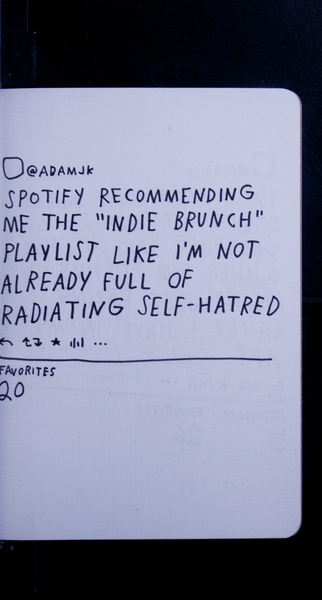 @ADAMJK
SPOTIFY RECOMMENDING
ME THE "INDIE BRUNCH"
PLAYLIST LIKE I'M NOT
ALREADY FULL OF
RADIATING SELF-HATRED
...
FAVORITES
20